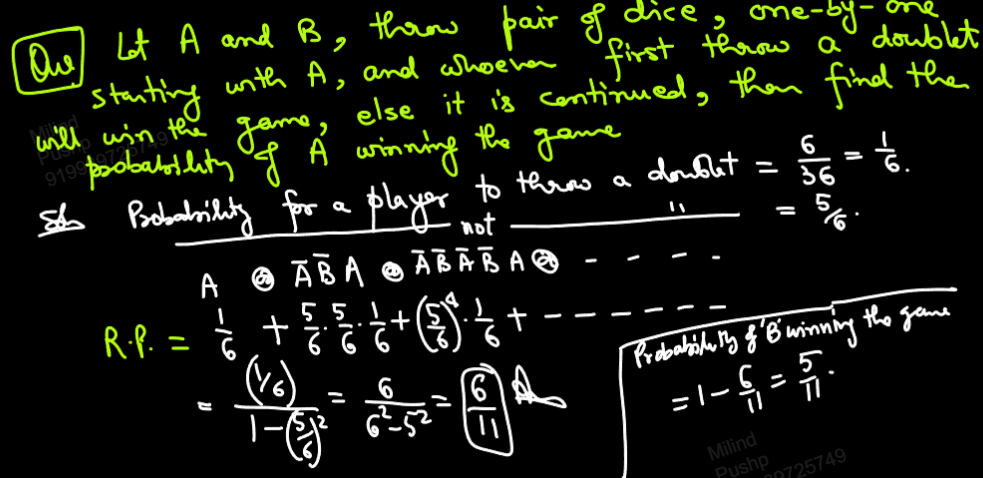 Que Let A and B, throw pair of dice, one-by-one
starting with A, and whoever first throw a doublet
will win the game, else it is continued, then find the
probability of A winning the game
Sol. Probability for a player to throw a doublet = 6/36 = 1/6.
not " = 5/6.
A or A̅ B̅ A or A̅ B̅ A̅ B̅ A or - - - -
R.P. = 1/6 + 5/6 · 5/6 · 1/6 + (5/6)^4 · 1/6 + - - - - - - -
= (1/6) / (1 - (5/6)^2) = 6 / (6^2 - 5^2) = 6/11 A
Probability of 'B' winning the game
= 1 - 6/11 = 5/11.
Milind
Pushp
Milind
Pushp
0725749